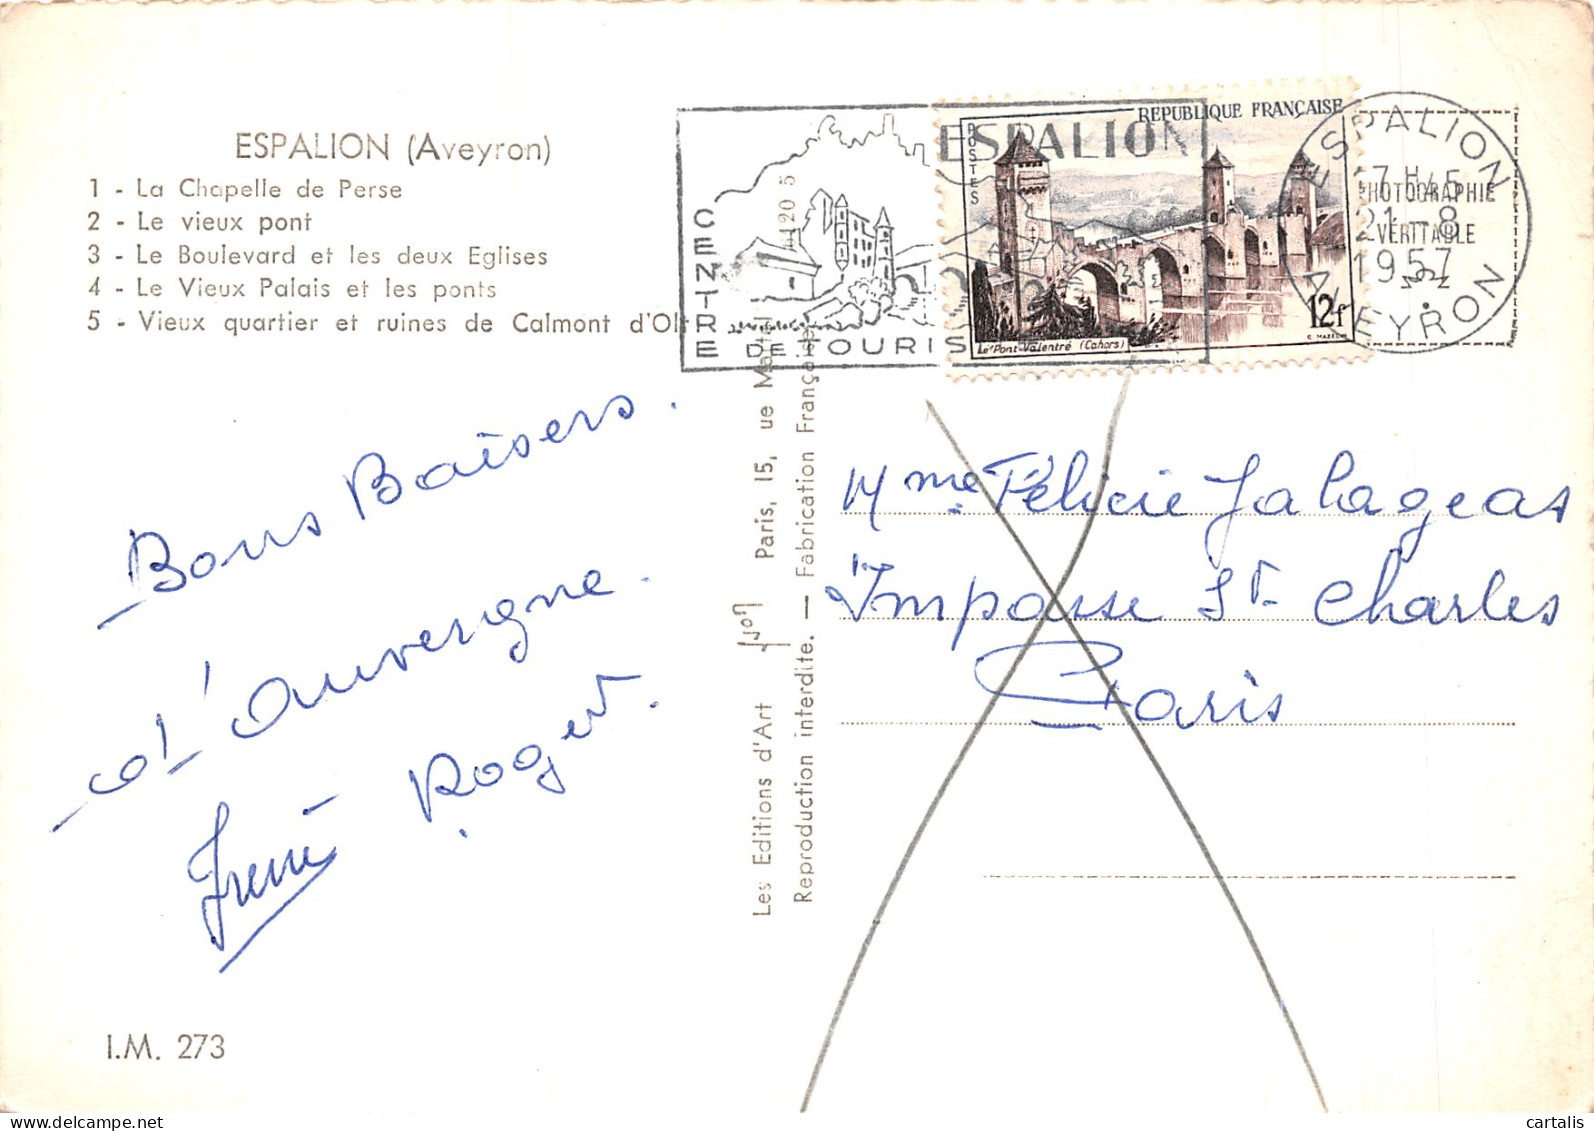 ESPALION (Aveyron)
1 - La Chapelle de Perse
2 - Le vieux pont
3 - Le Boulevard et les deux Eglises
4 - Le Vieux Palais et les ponts
5 - Vieux quartier et ruines de Calmont d'Olt
Bons Baisers.
d'Auvergne.
Roger.
I.M. 273
Les Editions d'Art Yvon Paris, 15, ue Martel
Reproduction interdite. — Fabrication Française
ESPALION
CENTRE
DE TOURIS
REPUBLIQUE FRANÇAISE
POSTES
12f
Le Pont Valentré (Cahors)
ESPALION
17 H45
21 - 8
1957
AVEYRON
PHOTOGRAPHIE
VERITABLE
Mme Félicie Jalageas
Impasse St Charles
Paris
cartalis
www.delcampe.net